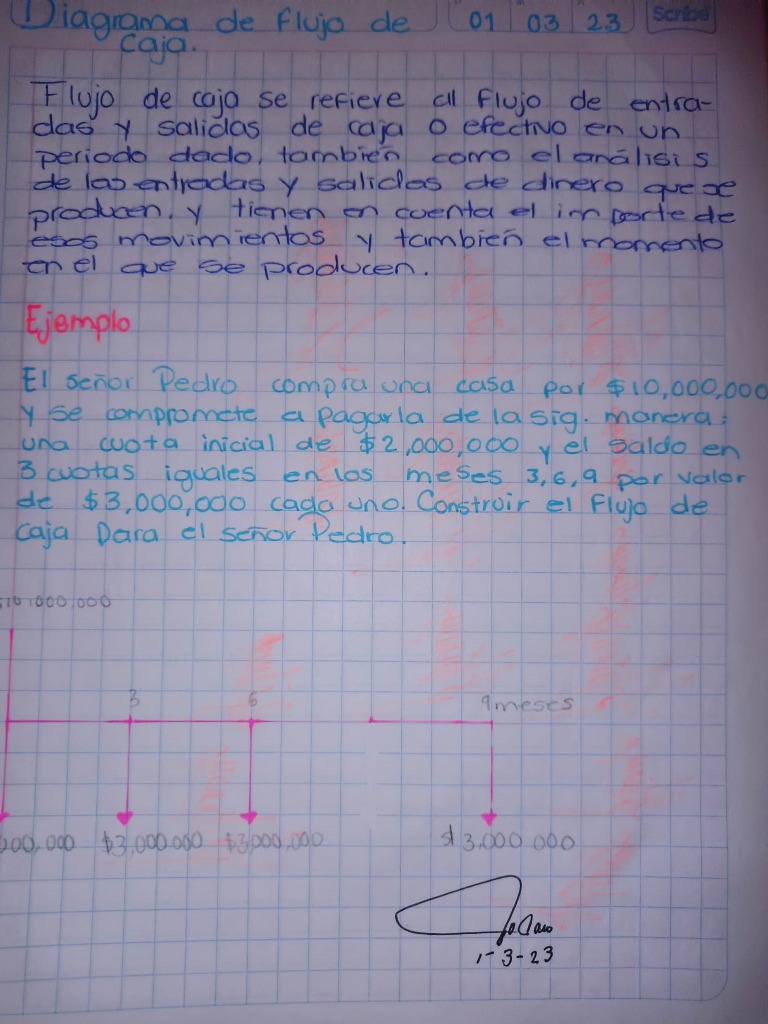 Diagrama de flujo de
caja.
01 03 23
Scribe
Flujo de caja se refiere al flujo de entra-
das y salidas de caja o efectivo en un
periodo dado, también como el análisis
de las entradas y salidas de dinero que se
producen, y tienen en cuenta el importe de
esos movimientos y también el momento
en el que se producen.
Ejemplo
El señor Pedro compra una casa por $10,000,000
y se compromete a pagarla de la sig. manera:
una cuota inicial de $2,000,000 y el saldo en
3 cuotas iguales en los meses 3,6,9 por valor
de $3,000,000 cada uno. Construir el flujo de
caja Para el señor Pedro.
$10,000,000
3 6 9 meses
000,000 $3,000.000 $3,000,000 $3,000 000
1-3-23